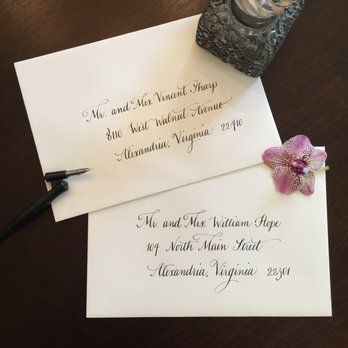 Mr. and Mrs. Vincent Sharp
8110 West Walnut Avenue
Alexandria, Virginia 22410
Mr. and Mrs. William Hope
104 North Main Street
Alexandria, Virginia 22301